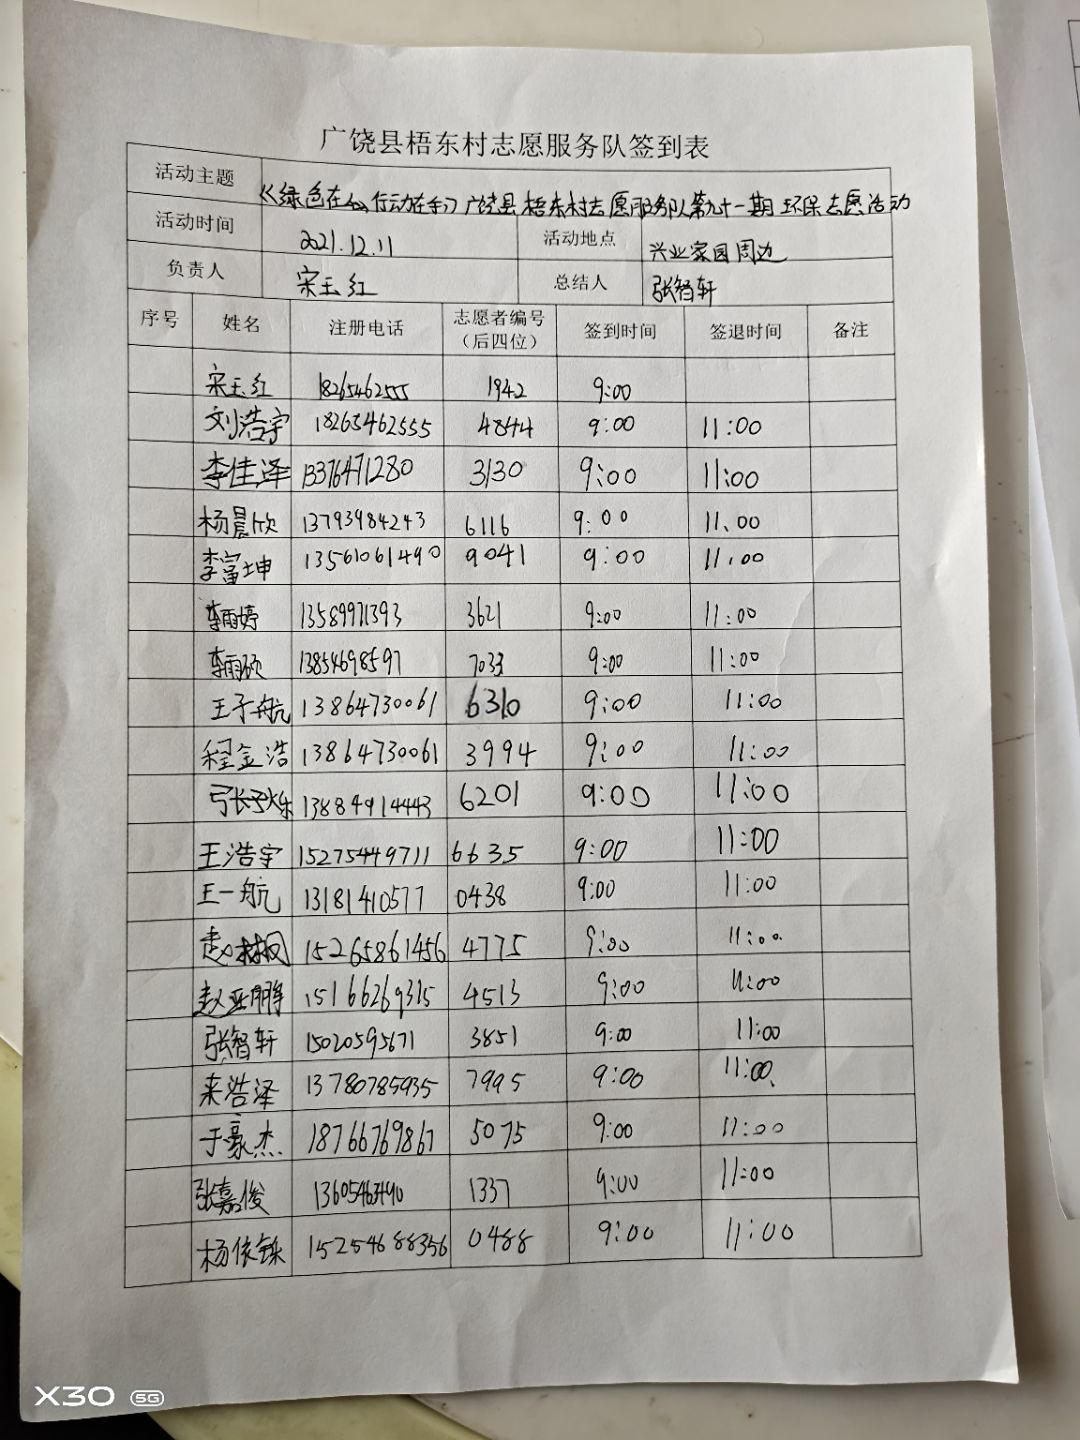 广饶县梧东村志愿服务队签到表
活动主题 《绿色在心 行动在手》广饶县梧东村志愿服务队第九十一期环保志愿活动
活动时间 2021.12.11 活动地点 兴业家园周边
负责人 宋玉红 总结人 张智轩
序号 姓名 注册电话 志愿者编号（后四位） 签到时间 签退时间 备注
宋玉红 18265462555 1942 9:00
刘浩宇 18265462555 4844 9:00 11:00
李佳泽 13376471280 3130 9:00 11:00
杨晨欣 13793984243 6116 9:00 11.00
李富坤 13561061490 9041 9:00 11:00
李雨婷 13589971393 3621 9:00 11:00
李雨硕 13854698597 7033 9:00 11:00
王子航 13864730061 6310 9:00 11:00
程金浩 13864730061 3994 9:00 11:00
张子烁 13884914443 6201 9:00 11:00
王浩宇 15275449711 6635 9:00 11:00
王一航 13181410577 0438 9:00 11:00
赵树枫 15265861456 4775 9:00 11:00
赵亚鹏 15166269315 4513 9:00 11:00
张智轩 15020595671 3851 9:00 11:00
来浩泽 13780785935 7995 9:00 11:00
于豪杰 18766769867 5075 9:00 11:00
张嘉俊 13605463490 1337 9:00 11:00
杨依铄 15254688356 0488 9:00 11:00
X30 5G